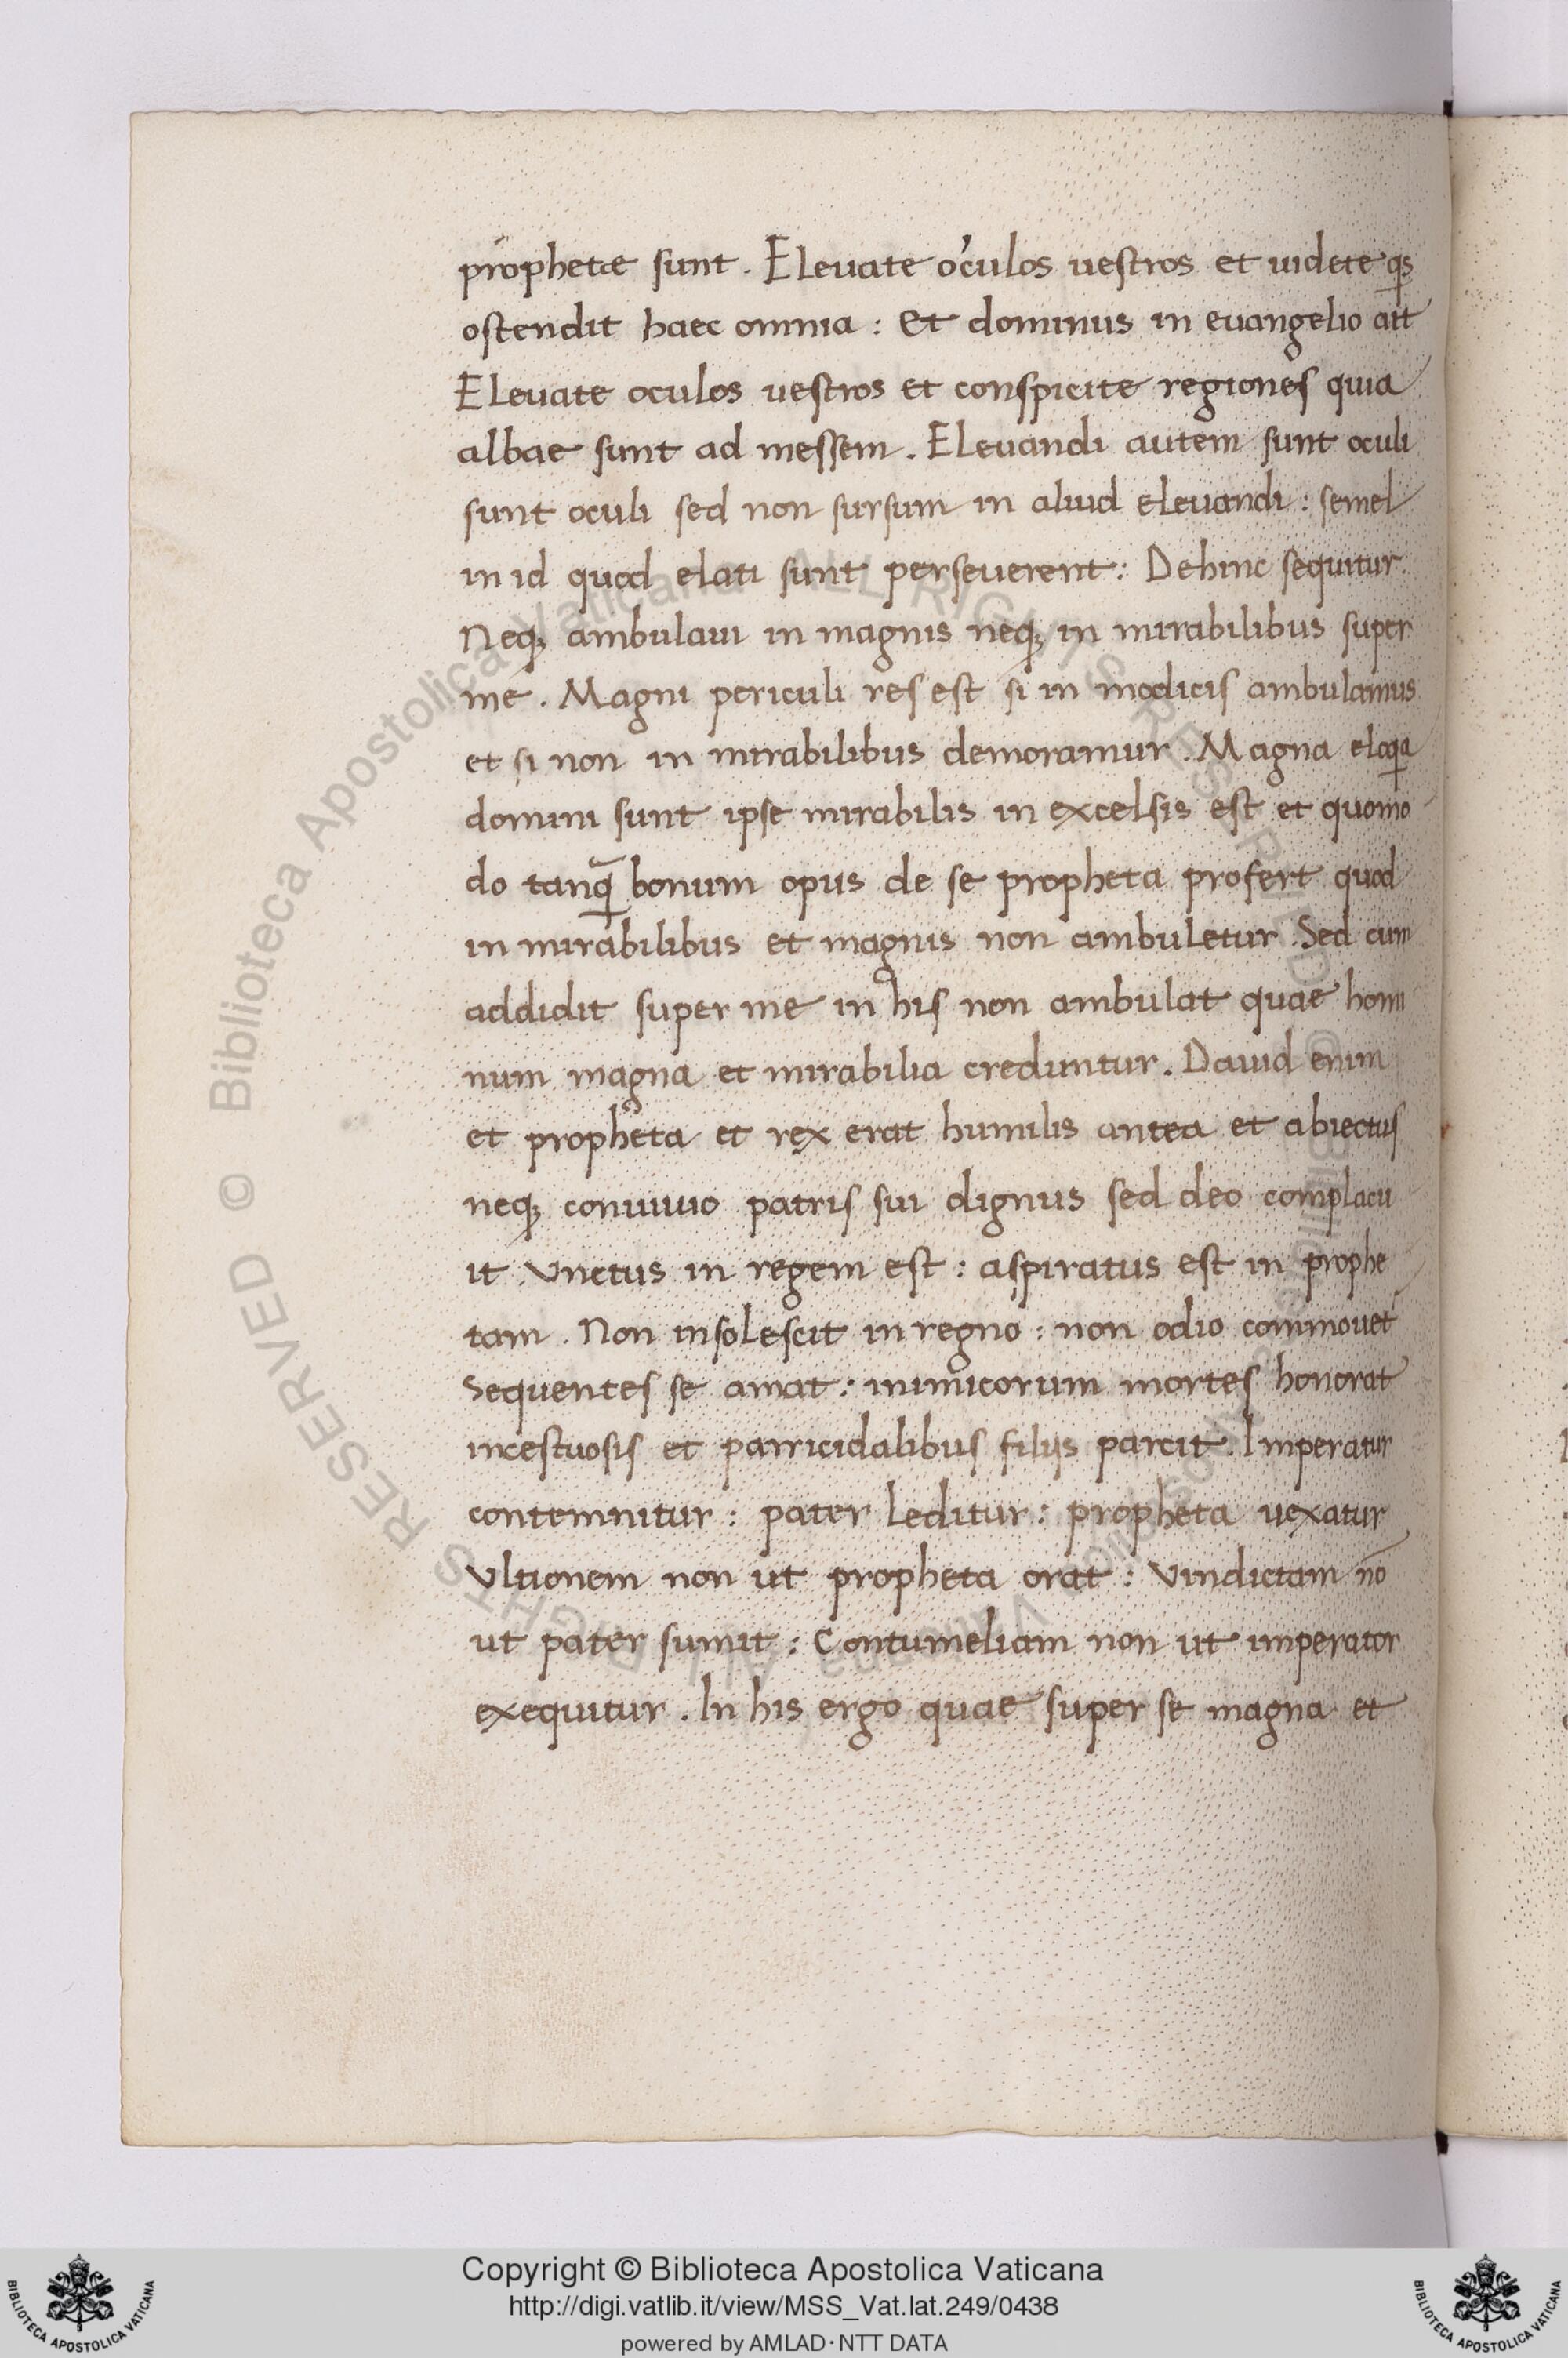 prophetæ sunt. Eleuate oculos uestros et uidete qis
ostendit haec omnia: Et dominus in euangelio ait
Eleuate oculos uestros et conspicite regiones quia
albae sunt ad messem. Eleuandi autem sunt oculi
sunt oculi sed non sursum in aliud eleuandi: semel
in id quod elati sunt perseuerent: Dehinc sequitur.
Neq; ambulaui in magnis neq; in mirabilibus super
me. Magni periculi res est si in modicis ambulamus
et si non in mirabilibus demoramur. Magna eloqia
domini sunt ipse mirabilis in excelsis est et quomo
do tanq̃ bonum opus de se propheta profert quod
in mirabilibus et magnis non ambuletur. Sed cum
addidit super me in his non ambulat quae homi
num magna et mirabilia creduntur. Dauid enim
et propheta et rex erat humilis antea et abiectus
neq; conuiuio patris sui dignus sed deo complacu
it. Vnctus in regem est: aspiratus est in prophe
tam. Non insolescit in regno: non odio commouet
Sequentes se amat: inimicorum mortes honorat
incestuosis et parricidalibus filijs parcit. Imperatur
contemnitur: pater leditur: propheta uexatur
Vltionem non ut propheta orat: Vindictam nō
ut pater sumit: Contumeliam non ut imperator
exequitur. In his ergo quae super se magna et
Biblioteca Apostolica Vaticana ALL RIGHTS RESERVED ©
Copyright © Biblioteca Apostolica Vaticana
http://digi.vatlib.it/view/MSS_Vat.lat.249/0438
powered by AMLAD·NTT DATA
BIBLIOTECA APOSTOLICA VATICANA
BIBLIOTECA APOSTOLICA VATICANA